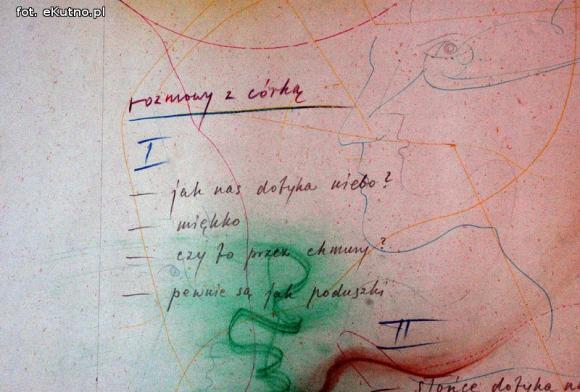 fot. eKutno.pl
rozmowy z córką
I
— jak nas dotyka niebo?
— miękko
— czy to przez chmury?
— pewnie są jak poduszki
II
— słońce dotyka